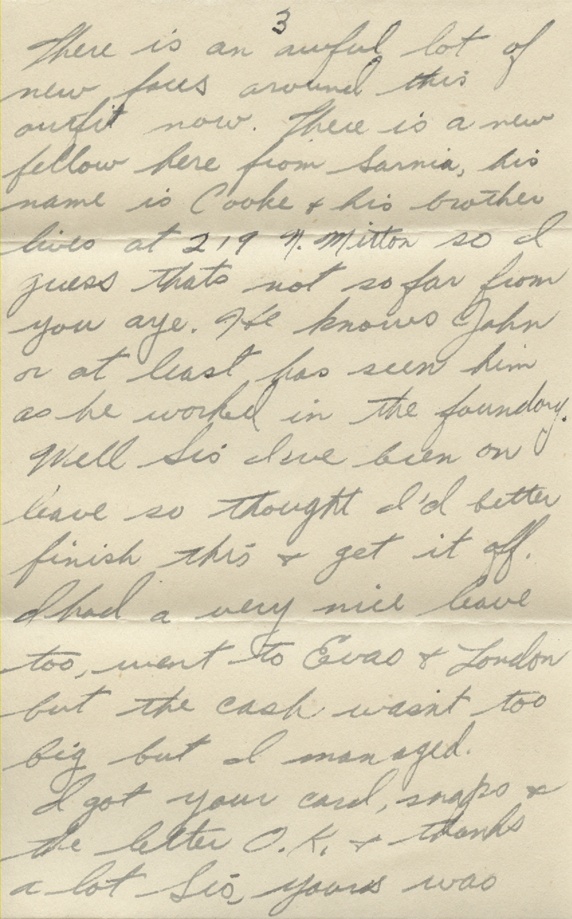 3
There is an awful lot of
new faces around this
outfit now. There is a new
fellow here from Sarnia, his
name is Cooke & his brother
lives at 219 N. Mitton so I
guess thats not so far from
you aye. He knows John
or at least has seen him
as he worked in the foundry.
Well Sis I've been on
leave so thought I'd better
finish this & get it off.
I had a very nice leave
too, went to Evas & London
but the cash wasn't too
big but I managed.
I got your card, snaps &
the letter O.K. & thanks
a lot Sis, yours was